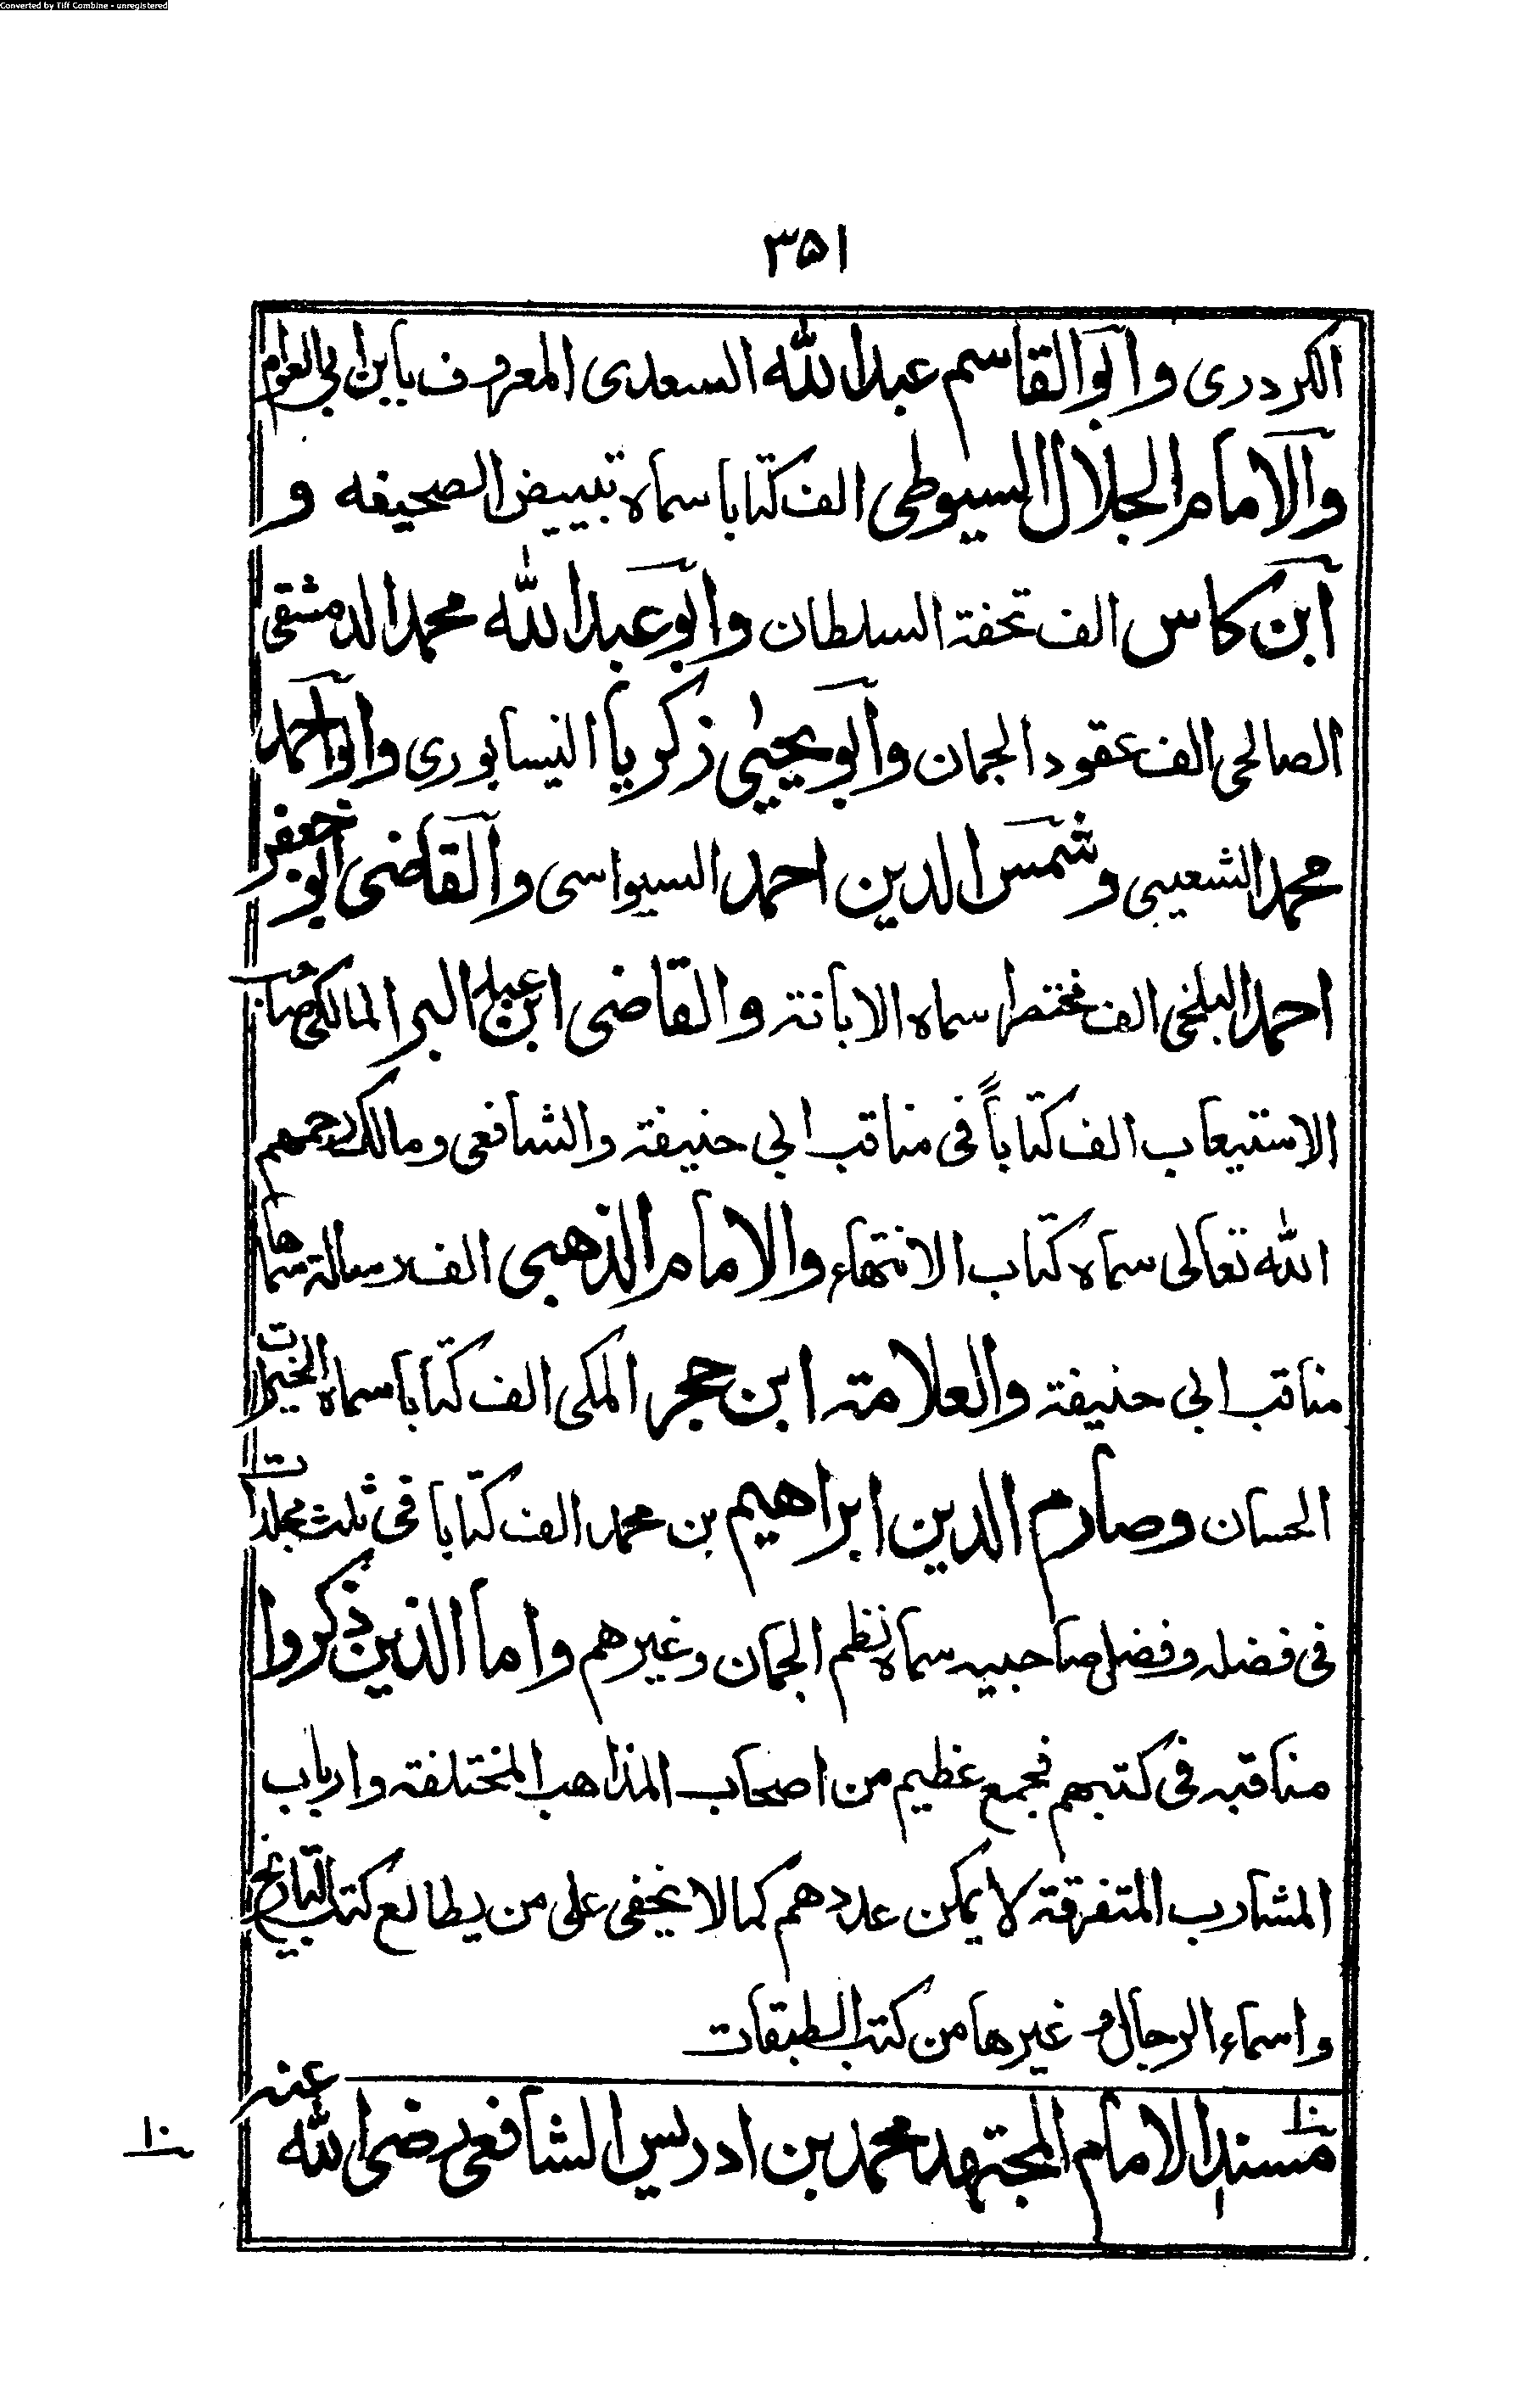 Converted by Tiff Combine - unregistered
۳۵۱
الكردرى وابو القاسم عبد الله السعدى المعروف بابن ابى العوام
والامام الجلال السيوطى الف كتابا سماه تبييض الصحيفه و
ابن كاس الف تحفة السلطان وابو عبد الله محمد الدمشقى
الصالحى الف عقود الجمان وابو يحيى زكريا النيسابورى وابو احمد
محمد الشعيبى وشمس الدين احمد السيواسى والقاضى ابو جعفر
احمد البلخى الف مختصرا سماه الابانة والقاضى ابن عبد البر المالكى صاحب
الاستيعاب الف كتاباً فى مناقب ابى حنيفة والشافعى ومالك رحمهم
الله تعالى سماه كتاب الانتهاء والامام الذهبى الف رسالة سماها
مناقب ابى حنيفة والعلامة ابن حجر المكى الف كتابا سماه الخيرات
الحسان وصارم الدين ابراهيم بن محمد الف كتابا فى ثلث مجلدات
فى فضله وفضل صاحبيه سماه نظم الجمان وغيرهم واما الذين ذكروا
مناقبه فى كتبهم فجمع عظيم من اصحاب المذاهب المختلفة وارباب
المشارب المتفرقة لا يمكن عددهم كما لا يخفى على من يطالع كتب التاريخ
واسماء الرجال وغيرها من كتب الطبقات
مسند الامام المجتهد محمد بن ادريس الشافعى رضى الله عنه
۱۰